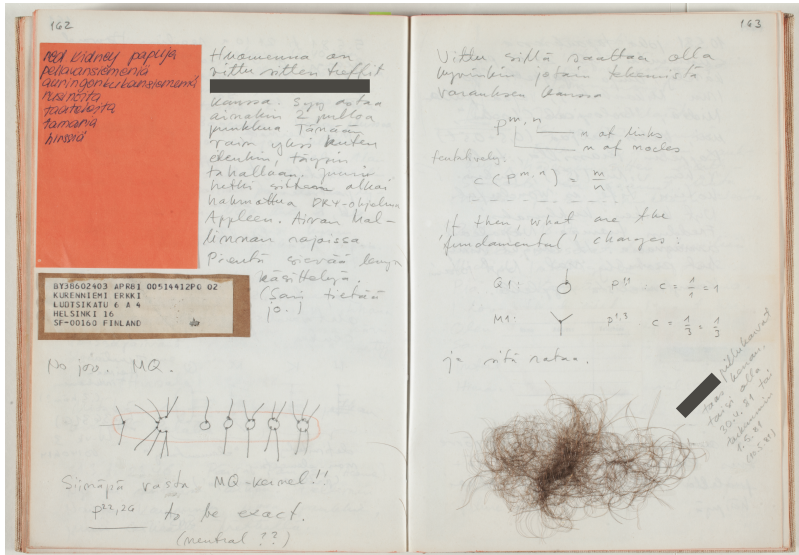 162
red kidney papuja
pellavansiemeniä
auringonkukansiemeniä
rusinoita
taateleita
tamaria
hirssiä
Huomenna on
vittu sitten treffit
kanssa.
ainakin 2 pulloa
punkkua
yksi kuten
täysin
hetki sitten alkoi
hahmottua DRY-ohjelma
Appleen. Aivan Mal-
linnan rajoissa
Pientä sievää
käsittelyä
(Sain tietää
jo.)
BY38602403 APR81 00514412PO 02
KURENNIEMI ERKKI
LUOTSIKATU 6 A 4
HELSINKI 16
SF-00160 FINLAND
No joo. MQ.
Siinäpä vasta MQ-kernel!!
P22,26 to be exact.
(neutral ??)
163
Vittu sillä saattaa olla
hyvinkin jotain tekemistä
varauksen kanssa
pm,n
n of links
m of nodes
tentatively:
c (pm,n) = m/n
If then, what are the
'fundamental' charges:
Q1: p1,1 c = 1/1 = 1
M1: p1,3 c = 1/3 = 1/3
ja sitä rataa.
pillukarvat
taas
olla
30.4.81 tai
1.5.81